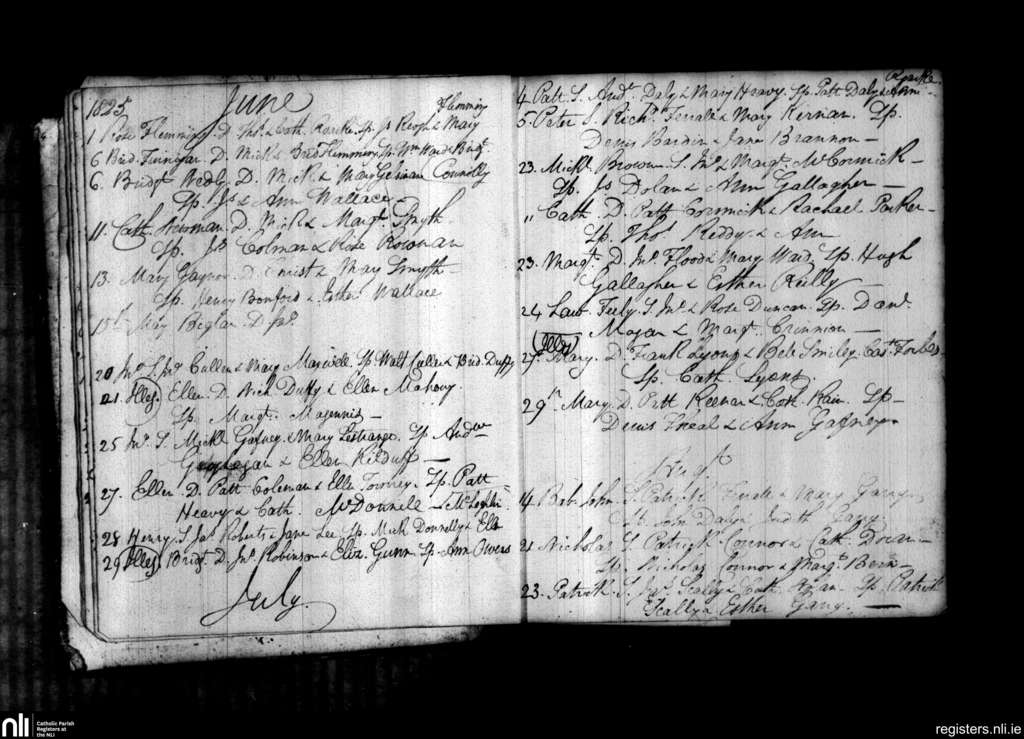 1825 June
Flemming
1 Rose Flemming D. Thos & Cath. Rourke Sp. Js Keogh & Mary
6 Brid. Finigan D. Mick & Brid Flemming Sp. Wm Ward & Bridt
6. Bridgt Wedly D. Mick & Mary Connolly
Sp. Js & Ann Wallace
11. Cath. Newman D. Mick & Margt Smyth
Sp. Jas Colman & Rose Rownan
13. Mary Gaynor D. Christ & Mary Smyth
Sp. Henry Bonford & Esther Wallace
15th May Beglan D. Jas.
20 Jno S. Jno Cullen & Mary Maxwell Sp. Watt Cullen & Brid. Duffy
21. Illeg. Ellen D. Mick Duffy & Ellen Mahony
Sp. Margt. Magennis
25 Jno S. Mickl Gafney & Mary Lestrange Sp. Andw
Geoghegan & Ellen Kilduff
27. Ellen D. Patt Coleman & Ellen Sp. Patt
Heavy & Cath. McDonnell
28 Henry S. Jas Roberts & Jane Lee Sp. Mick Donnelly & Ellen
29 Illeg. Bridgt D. Jno Robinson & Eliza Gunn Sp. Ann Owens
July
Rourke
4 Patt. S. Andw Daly & Mary Heavy Sp. Patt Daly & Ann
5. Peter S. Richd Ferrall & Mary Kiernan Sp.
Denis Bardin & Jane Brannon
23. Mickl Browne S. Jno & Margt McCormick
Sp. Js Dolan & Ann Gallagher
" Cath. D. Patt Cormick & Rachael Parker
Sp. Thos Reddy & Ann
23. Margt. D. Jno Flood & Mary Ward Sp. Hugh
Gallagher & Esther Reilly
24 Law. Feely S. Jno & Rose Duncan Sp. Danl
Mogan & Margt Crinnion
(Illeg)
27. Mary D. Frank Lyons & Beb Smiley Cast. Forbes
Sp. Cath. Lyons
29th Mary D. Patt Keenan & Cath. Kain Sp.
Denis Kneal & Ann Gafney
Augt
14. Bab. John S. Patrick Ferrall & Mary Garry
Sp. John Daly & Judith Garry
21. Nicholas S. Patrick Connor & Cath.
Sp. Nicholas Connor & Margt
23. Patrick S. Jas Scally & Cath. Sp. Patrick
Scally & Esther Garry
nli Catholic Parish
Registers at
the NLI
registers.nli.ie